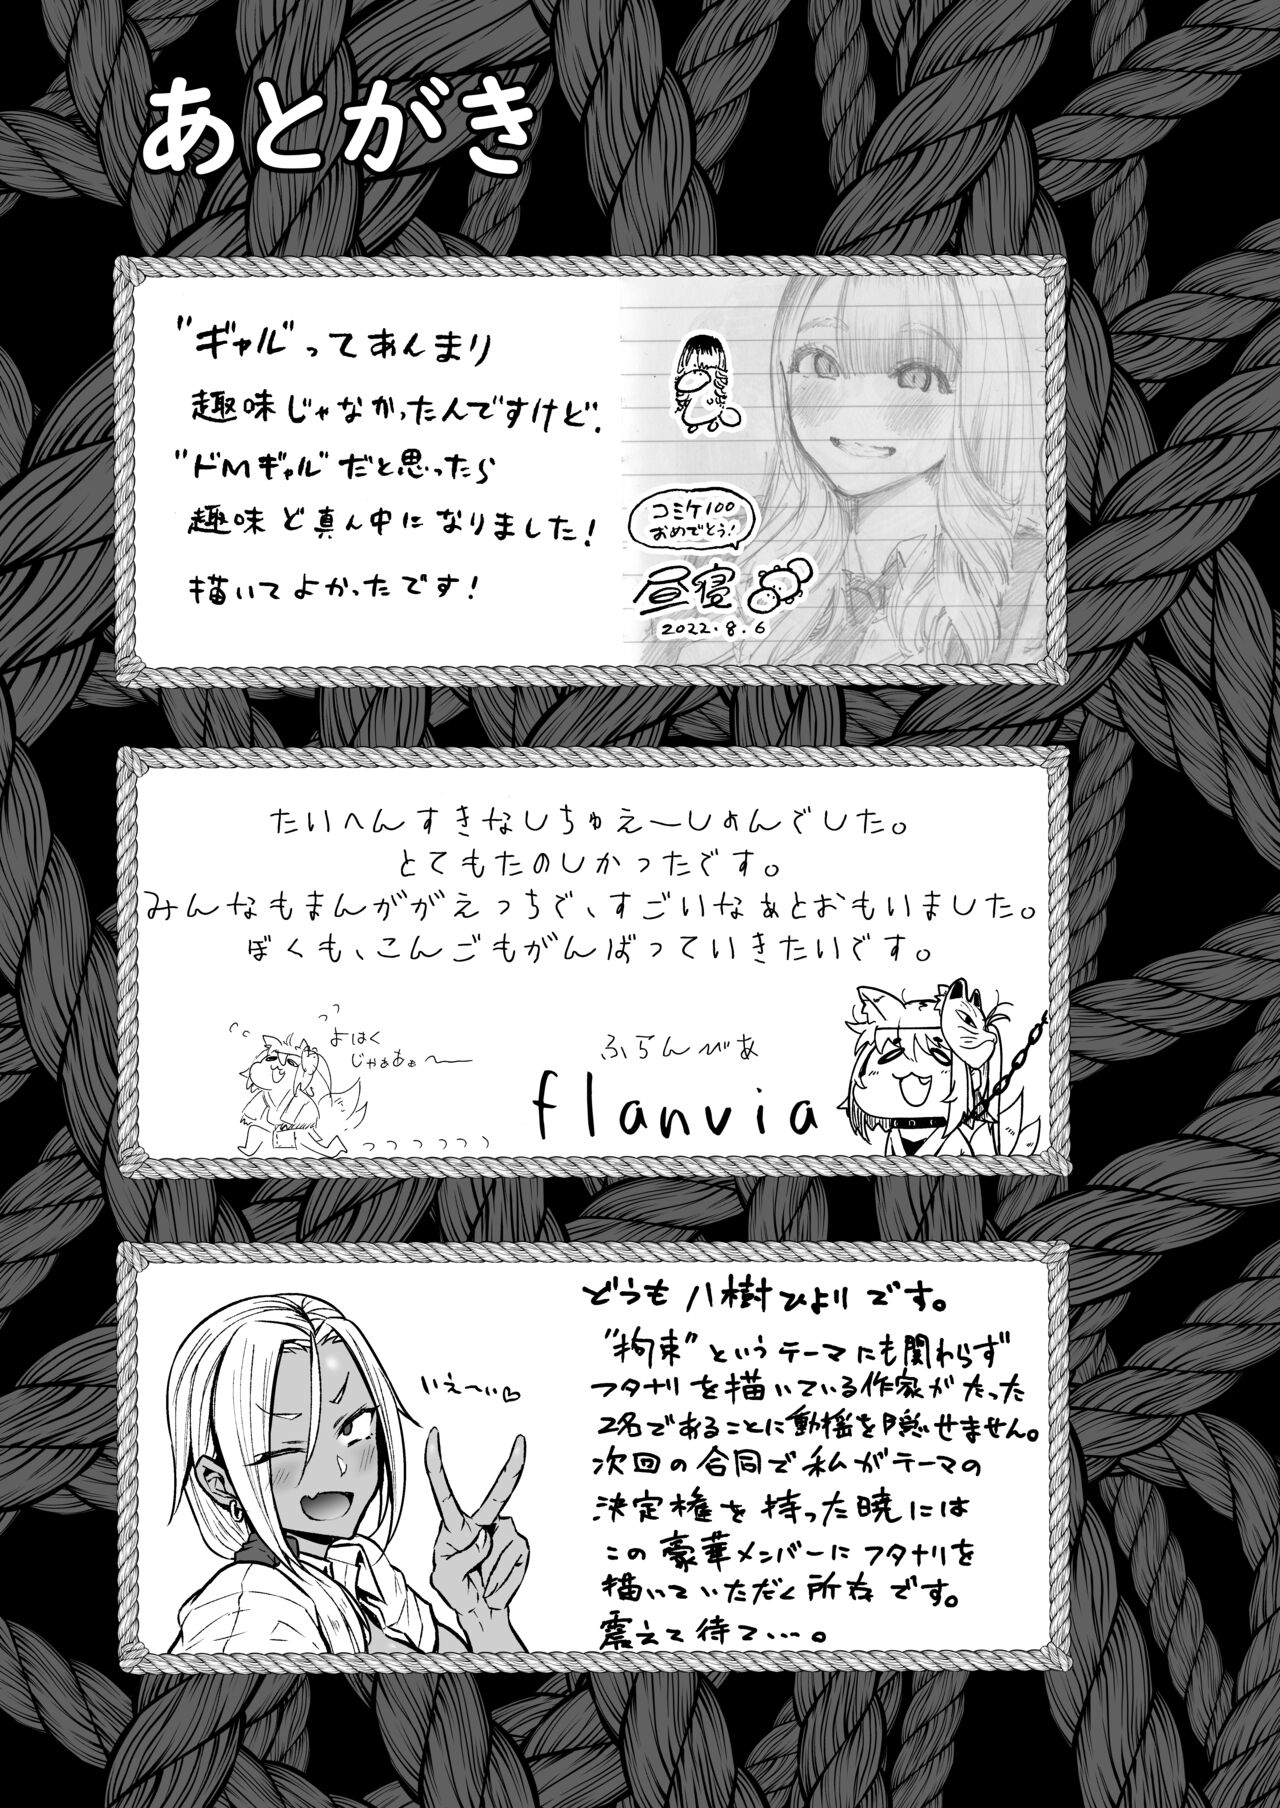 あとがき
"ギャル"ってあんまり
趣味じゃなかったんですけど、
"ドMギャル"だと思ったら
趣味ど真ん中になりました!
描いてよかったです!
コミケ100
おめでとう!
昼寝
2022.8.6
たいへんすきなしちゅえーしょんでした。
とてもたのしかったです。
みんなもまんががえっちで、すごいなぁとおもいました。
ぼくも、こんごもがんばっていきたいです。
よはく
じゃぁあぁ〜
っっっっっっ
ふらんびあ
flanvia
いえ〜い♡
どうも 八樹ひよりです。
"拘束"というテーマにも関わらず
フタナリを描いている作家がたった
2名であることに動揺を隠せません。
次回の合同で私がテーマの
決定権を持った暁には
この豪華メンバーにフタナリを
描いていただく所存です。
震えて待て…。